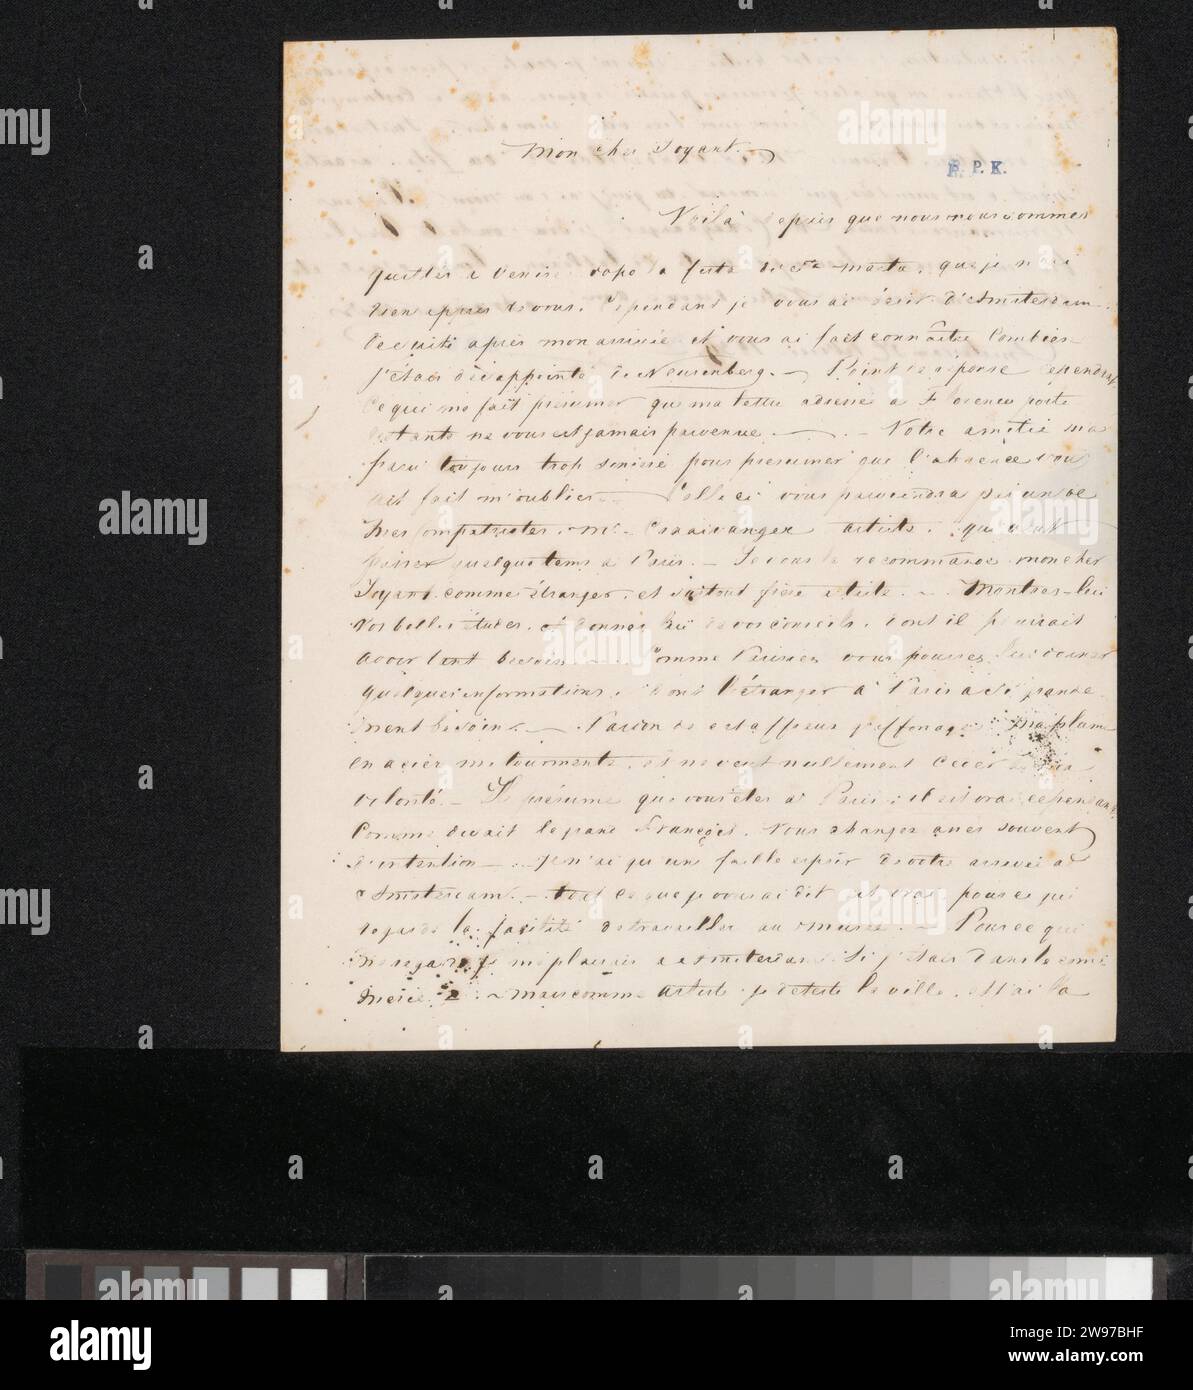 Mon cher Joyant.
P. P. K.
Voilà depuis que nous nous sommes
quittés à Venise la festa di Sta Marta, que je n'ai
rien appris de vous. Cependant je vous ai écrit d'Amsterdam
de suite après mon arrivée et vous ai fait connaître combien
j'étais désappointé de Neurenberg. — Point de réponse cependant
ce qui me fait présumer que ma lettre adressée à Florence poste
restante ne vous est jamais parvenue. — Votre amitié m'a
paru toujours trop sincère pour présumer que l'absence vous
ait fait m'oublier — Celle ci vous parviendra par un de
mes compatriotes. Mr. artiste. qui veut
passer quelque tems à Paris. — Je vous le recommande mon cher
Joyant. comme étranger. et surtout artiste. — Montrez-lui
vos belles études. et donnez lui de vos conseils. dont il pourrait
avoir tant besoin — Comme Parisien vous pouvez lui donner
quelques informations. dont l'étranger à Paris a si
ment besoin. — Pardon de cet affreux griffonage ma plume
en acier me tourmente. et ne veut nullement céder à ma
volonté. — Je présume que vous êtes à Paris; il est vrai cependant
comme disait le François. Vous changez assez souvent
d'intention — Je n'ai qu'un faible espoir de votre arrivée à
Amsterdam. — tout ce que je vous ai dit est vrai pour ce qui
regarde la facilité de travailler au musée. — Pour ce qui
me regarde je me plairais à Amsterdam. Si j'étais dans le com-
merce — mais comme artiste je déteste la ville. et j'ai la
alamy
alamy
alamy
alamy
alamy
alamy
alamy
alamy
Image ID: 2W97BHF
www.alamy.com